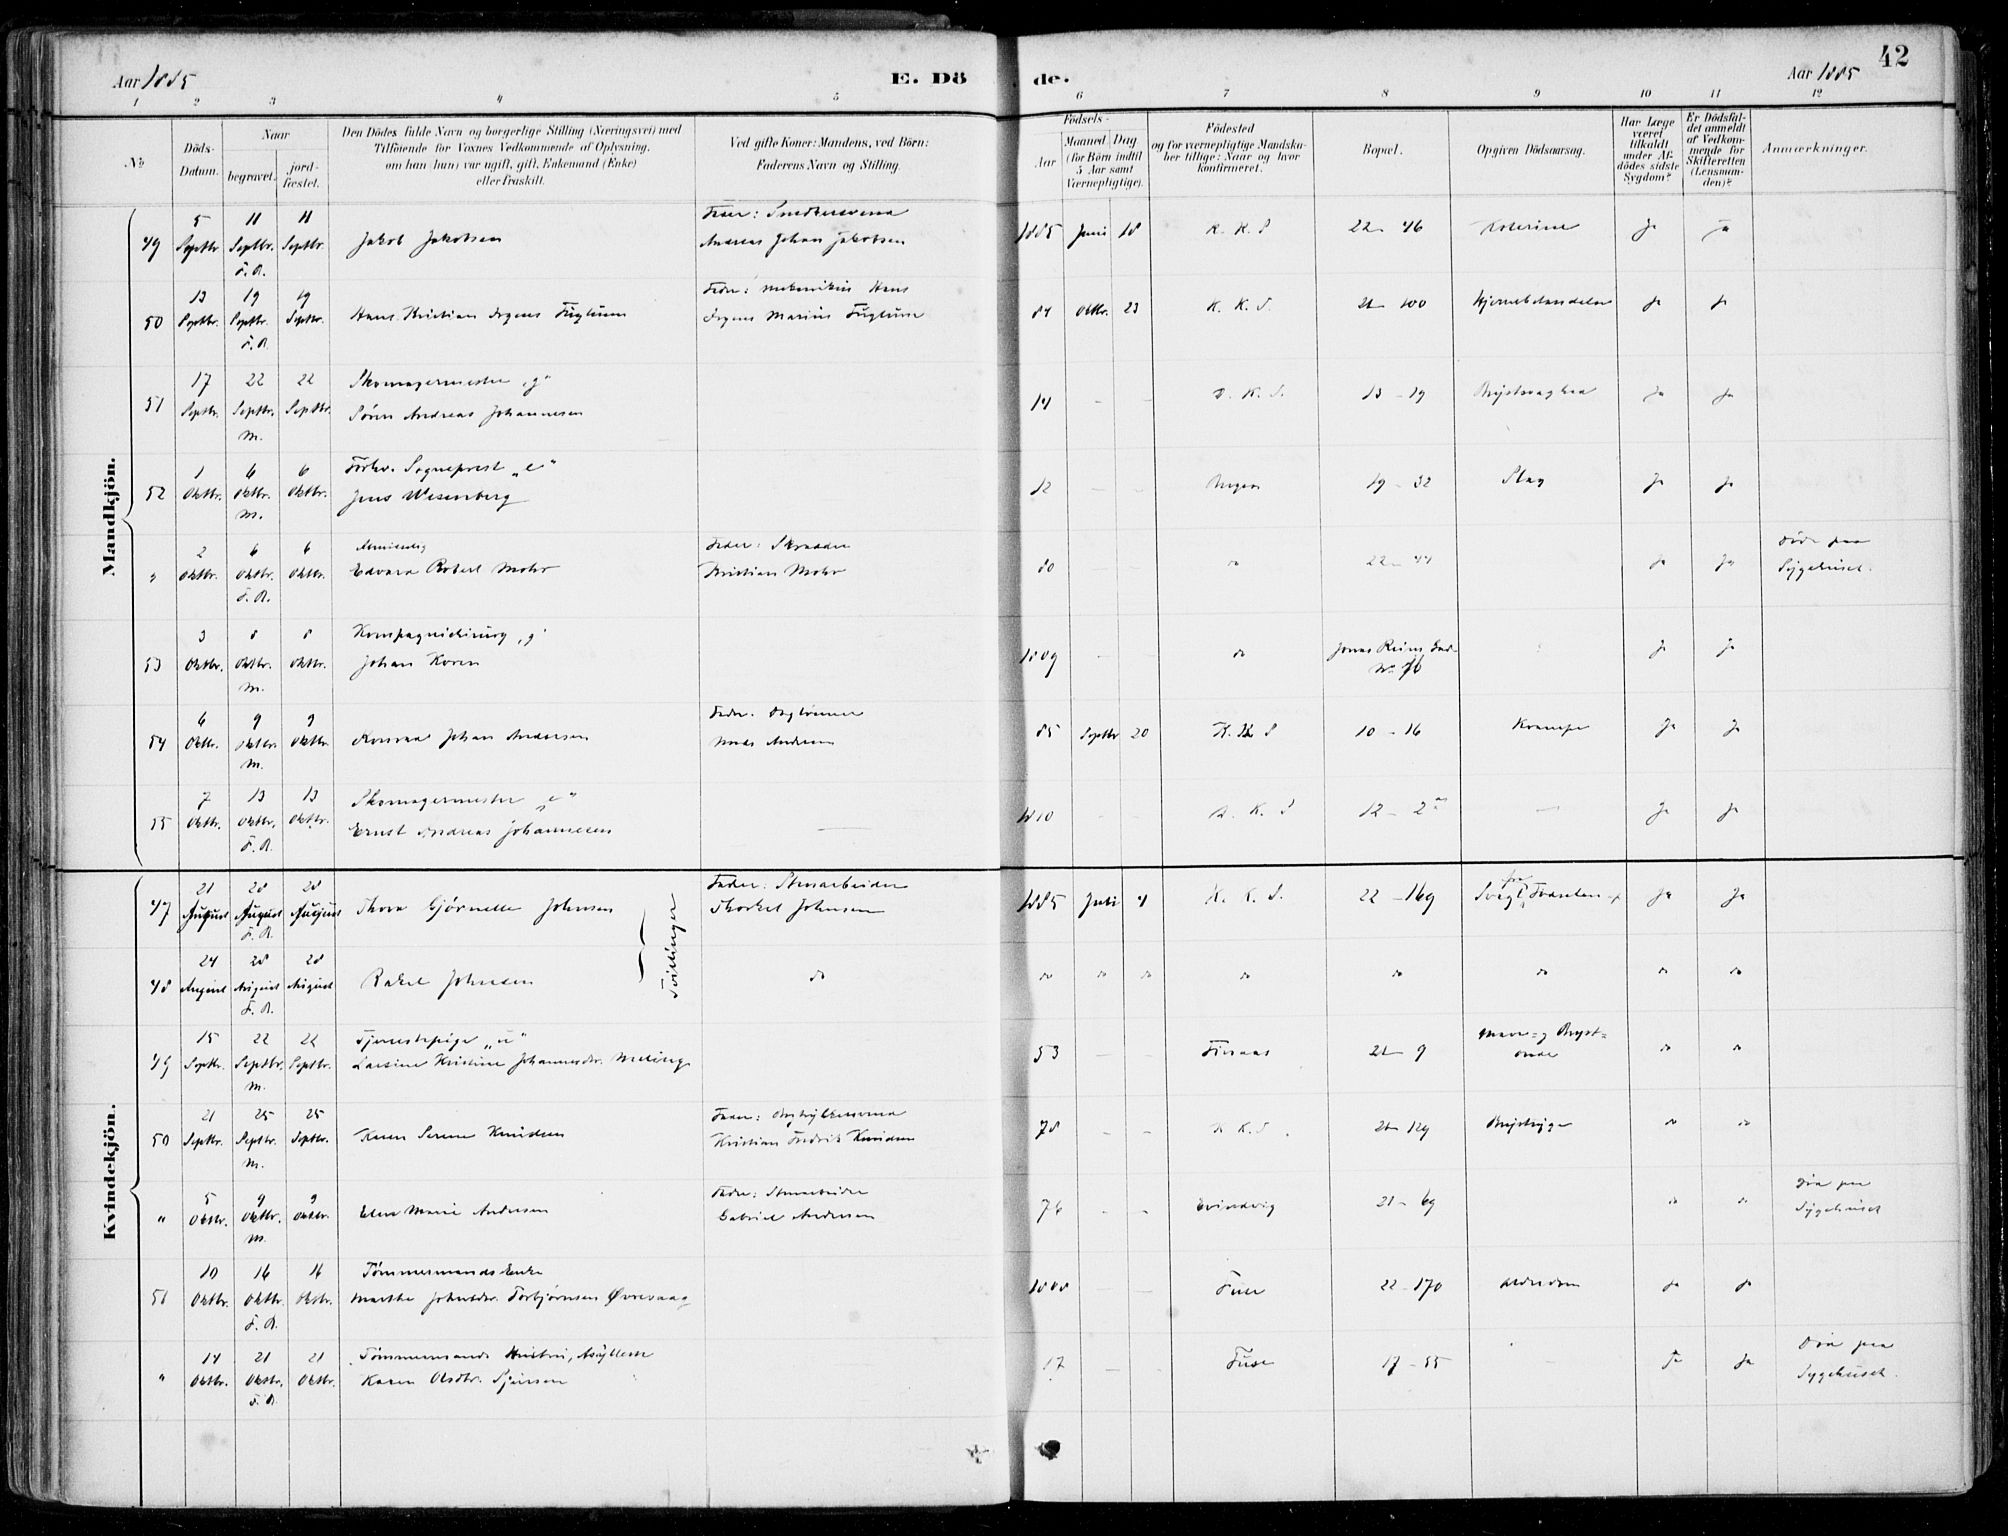 42
Aar 1885 E. Dö de. Aar 1885
1 2 3 4 5 6 7 8 9 10 11 12
No
Döds-Datum.
Naar
begravet.
jord-fæstet.
Den Dödes fulde Navn og borgerlige Stilling (Næringsvei) med
Tilføiende for Voxnes Vedkommende af Oplysning,
om han (hun) var ugift, gift, Enkemand (Enke)
eller fraskilt.
Ved gifte Koner: Mandens, ved Börn:
Faderens Navn og Stilling.
Födsels-
Aar
Maaned Dag
(for Börn indtil
5 Aar samt
Værnepligtige).
Födested
og for værnepligtige Mandska-
ber tillige: Naar og hvor
konfirmeret.
Bopæl.
Opgiven Dödsaarsag.
Har Læge
været
tilkaldt
under Af-
dödes sidste
Sygdom?
Er Dödsfal-
det anmeldt
af Vedkom-
mende for
Skifteretten
(Lensman-
den)?
Anmærkninger.
Mandkjön.
5 11 11 Fader: Snedkersvend
49 Septbr. Septbr. Septbr. Jakob Jakobsen Andreas Johan Jakobsen 1885 Juni 18 K. K. S 22 - 46 Ja Ja
F. A.
13 19 19 Fader: Mekanikus Hans
50 Septbr. Septbr. Septbr. Hans Kristian Jrgens Fuglum Jrgens Marius Fuglum 84 Oktbr. 23 K. K. S. 21 - 100 Hjernebetændelse Ja Ja
F. A.
17 22 22 Skomagermester „g“
51 Septbr. Septbr. Septbr. Sören Andreas Johannesen 14 - - K. S. 13 - 19 Ja Ja
M.
1 6 6 Forhv. Sogneprest „e“
52 Oktbr. Oktbr. Oktbr. Jens Wesenberg 12 - - 19 - 32 Slag Ja Ja
M.
2 6 6 Almisselig Fader: Skrædder Död paa
„ Oktbr. Oktbr. Oktbr. Edvard Robert Mohr Kristian Mohr 80 - do 22 - 44 Ja Ja Sygehuset.
F. A.
3 8 8 Kompagnichirurg „g“
53 Oktbr. Oktbr. Oktbr. Johan Koren 1809 - do Jonas Reins Gad- Ja Ja
M. No 76
6 9 9 Fader: Daglönner
54 Oktbr. Oktbr. Oktbr. Konrad Johan Andersen Andersen 85 Septbr 20 K. K. S 10 - 16 Krampe Ja Ja
M.
7 13 13 Skomagermester „e“
55 Oktbr. Oktbr. Oktbr. Ernst Andreas Johannesen — 1810 K. S 12 - 2 — Ja Ja
F. A.
Kvindekjön.
21 28 28 Fader: Stenarbeider
47 August August August Thora Gjörnelle Johnsen Thorkel Johnsen 1885 Juli 4 K. K. S. 22 - 169 Svagt fra Födselen Ja Ja
F. A. Tvillinger
24 28 28
48 August August August Rakel Johnsen do do do do do do do do do
F. A.
15 22 22 Tjenestepige „u“ Mave- og Bryst-
49 Septbr. Septbr. Septbr. Larsine Kristine Johannesdtr. Meling 53 - 21 - 9 onde do do
M.
21 25 25 Fader:
50 Septbr. Septbr. Septbr. Karen Serene Knudsen Kristian Fredrik Knudsen 78 - - K. K. S. 21 - 129 Brystsyge do do
M.
5 9 9 Fader: Stenarbeider Död paa
„ Oktbr. Oktbr. Oktbr. Elen Marie Andersen Gabriel Andersen 76 - - Evindvig 21 - 69 do do Sygehuset
M.
10 16 16 Tömmermands Enke
51 Oktbr. Oktbr. Oktbr. Marthe Johnsdtr. Torbjörnsen Øvrevaag 1808 - - Fuse 22 - 170 Alderdom Ja Ja
F. A.
14 21 21 Tömmermands Hustru, Död paa
„ Oktbr. Oktbr. Oktbr. Karen Olsdtr. 17 - - Fuse 17 - 55 - Ja Ja Sygehuset.
F. A.